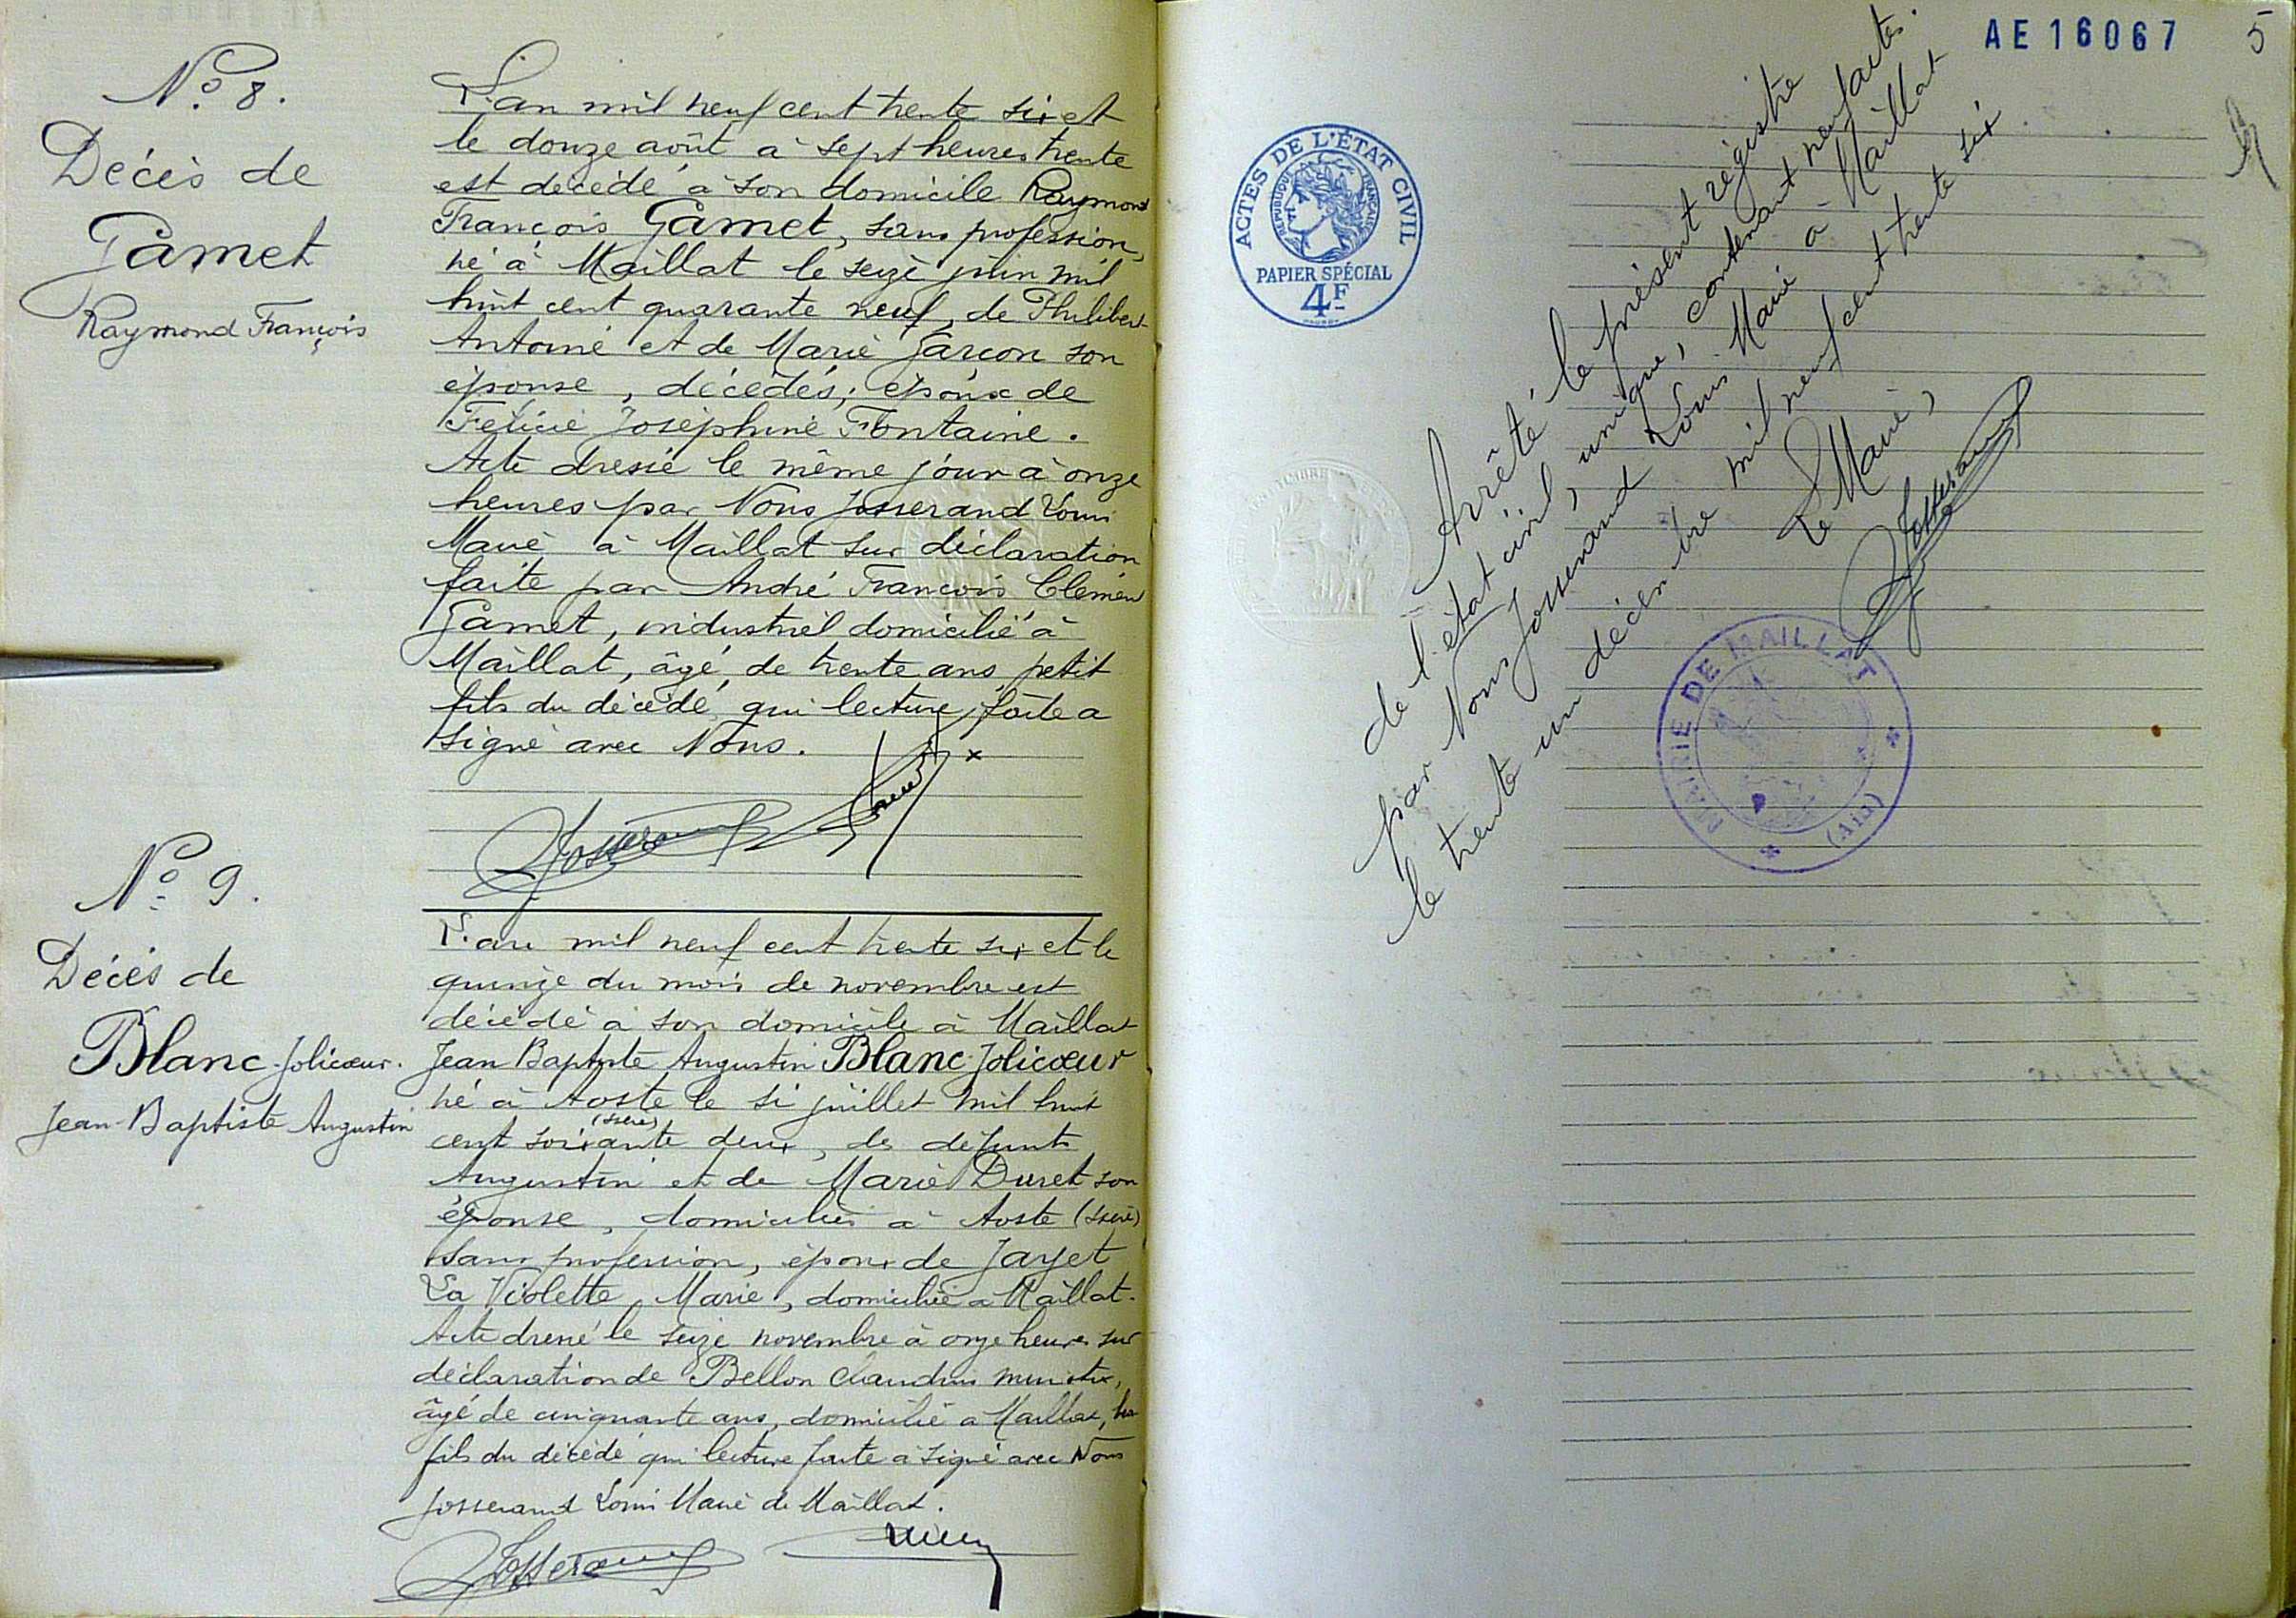 N° 8.
Décès de
Gamet
Raymond François
L'an mil neuf cent trente six et
le douze août à sept heures trente
est décédé à son domicile Raymond
François Gamet, sans profession,
né à Maillat le seize juin mil
huit cent quarante neuf, de Philibert
Antoine et de Marie Garcon son
épouse, décédés; époux de
Félicie Joséphine Fontaine.
Acte dressé le même jour à onze
heures par Nous Josserand Louis
Maire à Maillat sur déclaration
faite par André François Clémen
Gamet, industriel domicilié à
Maillat, âgé de trente ans, petit
fils du décédé, qui lecture faite a
signé avec Nous.
Josserand
N° 9.
Décès de
Blanc-Jolicœur.
Jean-Baptiste Augustin
L'an mil neuf cent trente six et le
quinze du mois de novembre est
décédé à son domicile à Maillat
Jean Baptiste Augustin Blanc-Jolicœur
né à Aoste le si juillet mil huit
(Isère)
cent soixante deux, de défunts
Augustin et de Marie Duret son
épouse, domiciliés à Aoste (Isère)
sans profession, époux de Jayet
La Violette Marie, domiciliée à Maillat.
Acte dressé le seize novembre à onze heures sur
déclaration de Bellon Claudius
âgé de cinquante ans, domicilié à Maillat,
fils du décédé qui lecture faite a signé avec Nous
Josserand Louis Maire de Maillat.
Josserand
AE 16067
5
ACTES DE L'ÉTAT CIVIL
RÉPUBLIQUE FRANÇAISE
PAPIER SPÉCIAL
4F
Arrêté le présent régistre
de l'état civil, unique, contenant neuf actes.
par Nous Josserand Louis Maire à Maillat
le trente un décembre mil neuf cent trente six
Le Maire,
Josserand
MAIRIE DE MAILLAT
(Ain)